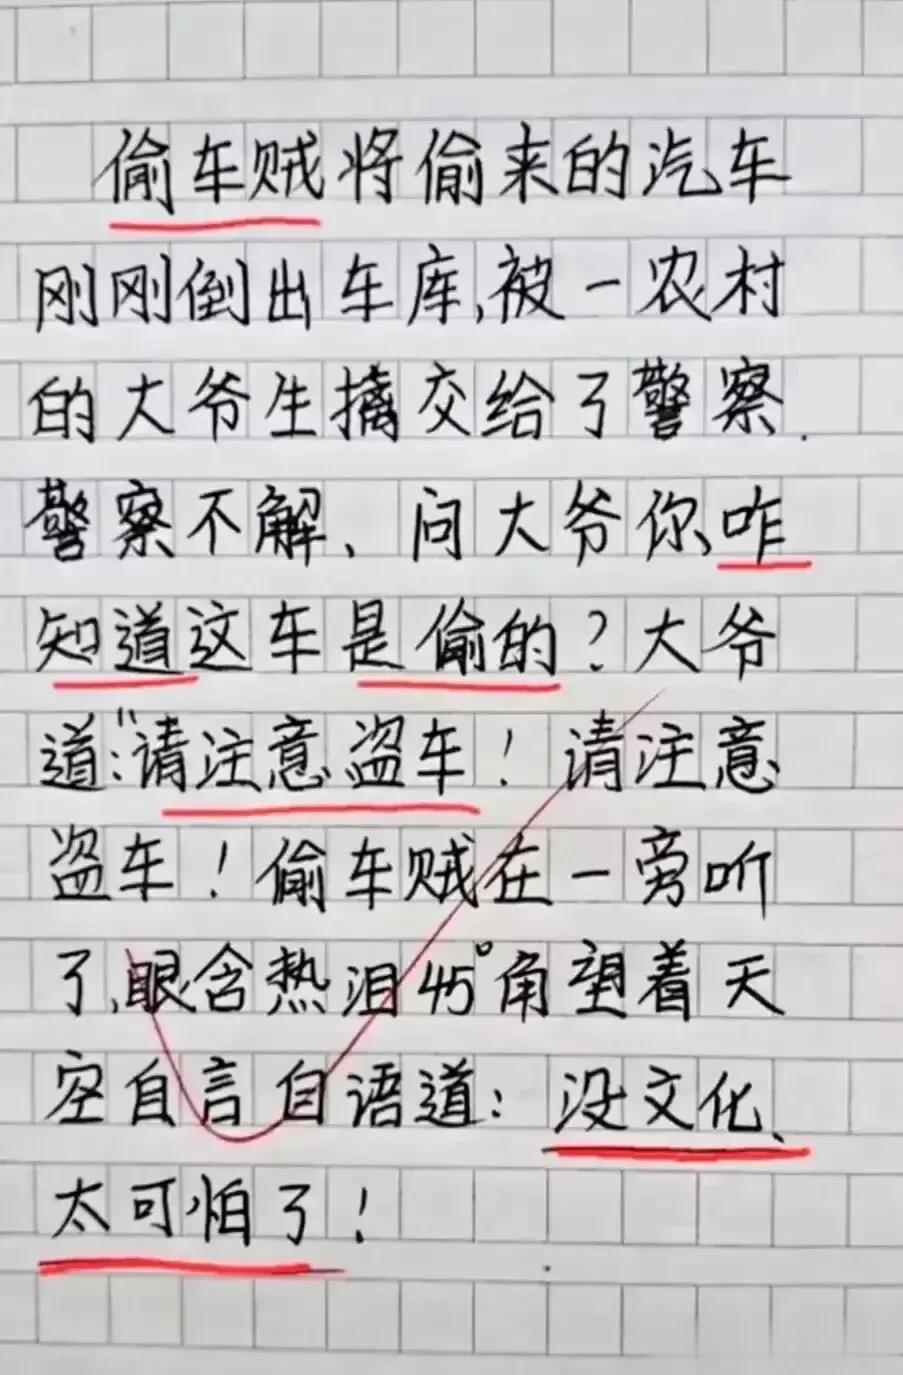 偷车贼将偷来的汽车
刚刚倒出车库,被一农村
的大爷生擒交给了警察.
警察不解、问大爷你咋
知道这车是偷的?大爷
道:"请注意盗车!请注意
盗车!偷车贼在一旁听
了,眼含热泪45°角望着天
空自言自语道:没文化、
太可怕了!